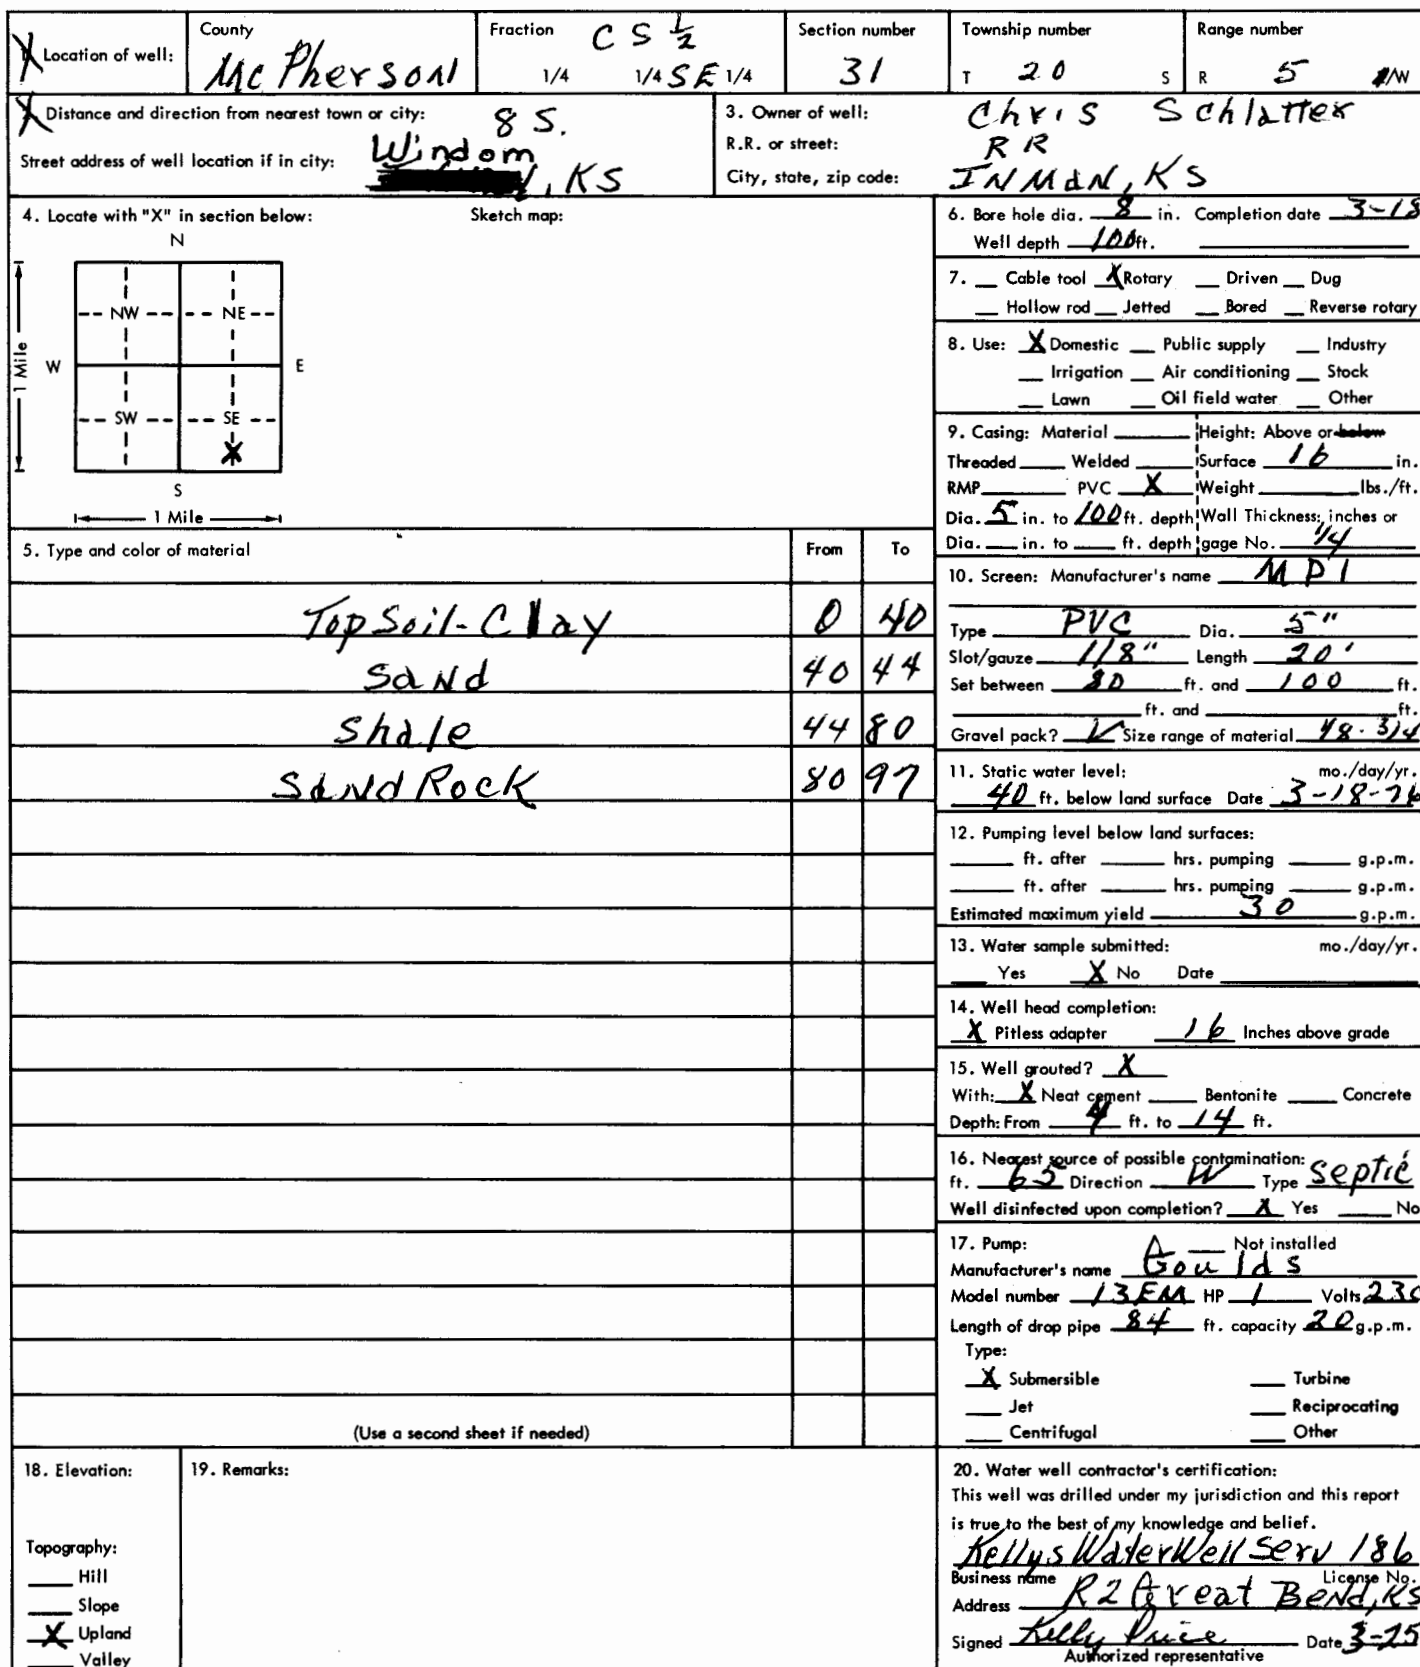 Location of well:
County
McPherson
Fraction
C S 1/2
1/4 1/4 SE 1/4
Section number
31
Township number
T 20 S
Range number
R 5 E/W
Distance and direction from nearest town or city: 8 S.
Street address of well location if in city: Windom, KS
3. Owner of well: Chris Schlatter
R.R. or street: RR
City, state, zip code: INMAN, KS
4. Locate with "X" in section below: Sketch map:
N
NW NE
W E
1 Mile
SW SE
X
S
1 Mile
5. Type and color of material From To
Top Soil - Clay 0 40
Sand 40 44
Shale 44 80
Sand Rock 80 97
(Use a second sheet if needed)
6. Bore hole dia. 8 in. Completion date 3-18
Well depth 100 ft.
7. __ Cable tool X Rotary __ Driven __ Dug
__ Hollow rod __ Jetted __ Bored __ Reverse rotary
8. Use: X Domestic __ Public supply __ Industry
__ Irrigation __ Air conditioning __ Stock
__ Lawn __ Oil field water __ Other
9. Casing: Material ____ Height: Above or below
Threaded ____ Welded ____ Surface 16 in.
RMP ____ PVC X Weight ____ lbs./ft.
Dia. 5 in. to 100 ft. depth Wall Thickness: inches or
Dia. __ in. to __ ft. depth gage No. 1/4
10. Screen: Manufacturer's name MPI
Type PVC Dia. 5"
Slot/gauze 1/8" Length 20'
Set between 80 ft. and 100 ft.
____ ft. and ____ ft.
Gravel pack? ✓ Size range of material 1/8-3/4
11. Static water level: mo./day/yr.
40 ft. below land surface Date 3-18-76
12. Pumping level below land surfaces:
____ ft. after ____ hrs. pumping ____ g.p.m.
____ ft. after ____ hrs. pumping ____ g.p.m.
Estimated maximum yield 30 g.p.m.
13. Water sample submitted: mo./day/yr.
__ Yes X No Date ____
14. Well head completion:
X Pitless adapter 16 Inches above grade
15. Well grouted? X
With: X Neat cement ____ Bentonite ____ Concrete
Depth: From 4 ft. to 14 ft.
16. Nearest source of possible contamination:
ft. 65 Direction W Type Septic
Well disinfected upon completion? X Yes ____ No
17. Pump: __ Not installed
Manufacturer's name Goulds
Model number 13EM HP 1 Volts 230
Length of drop pipe 84 ft. capacity 20 g.p.m.
Type:
X Submersible __ Turbine
__ Jet __ Reciprocating
__ Centrifugal __ Other
18. Elevation:
Topography:
__ Hill
__ Slope
X Upland
__ Valley
19. Remarks:
20. Water well contractor's certification:
This well was drilled under my jurisdiction and this report
is true to the best of my knowledge and belief.
Kellys Water Well Serv 186
Business name License No.
Address R2 Great Bend, KS
Signed Kelly Price Date 3-25
Authorized representative